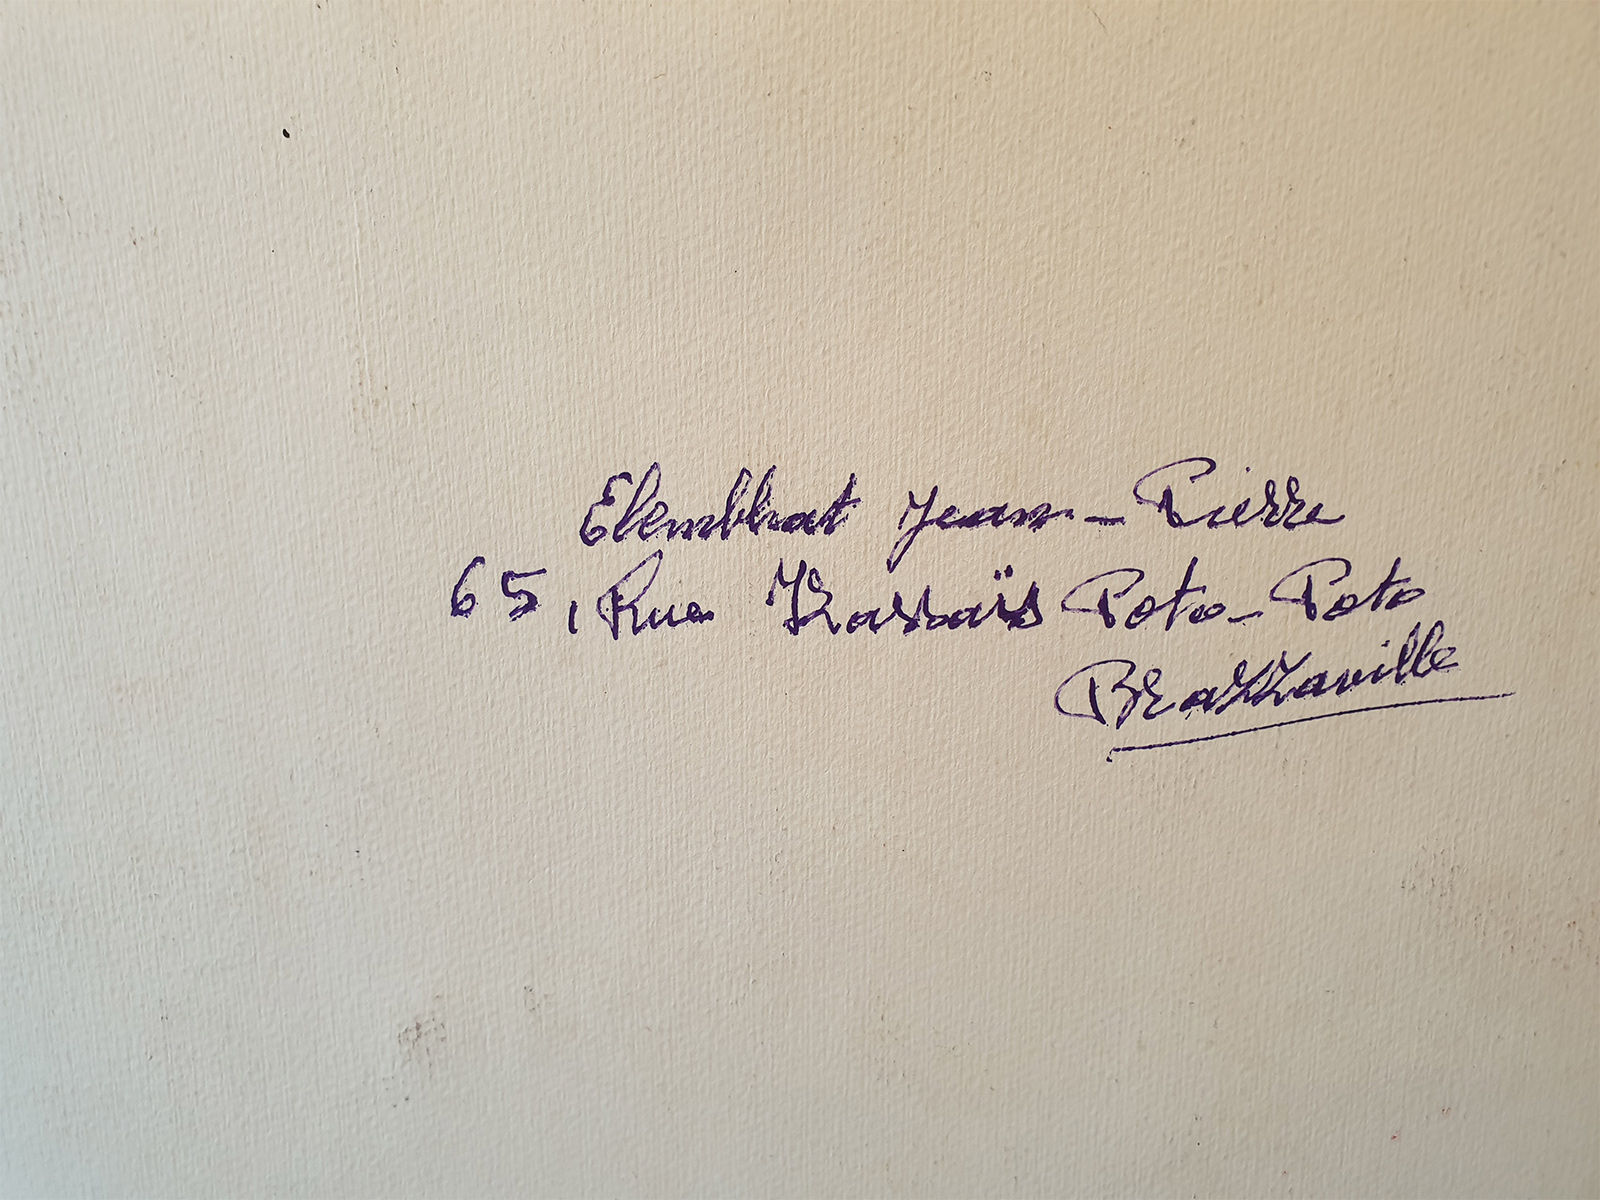 Elembhat Jean-Pierre
65, Rue Kassaïs Poto-Poto
Brazzaville